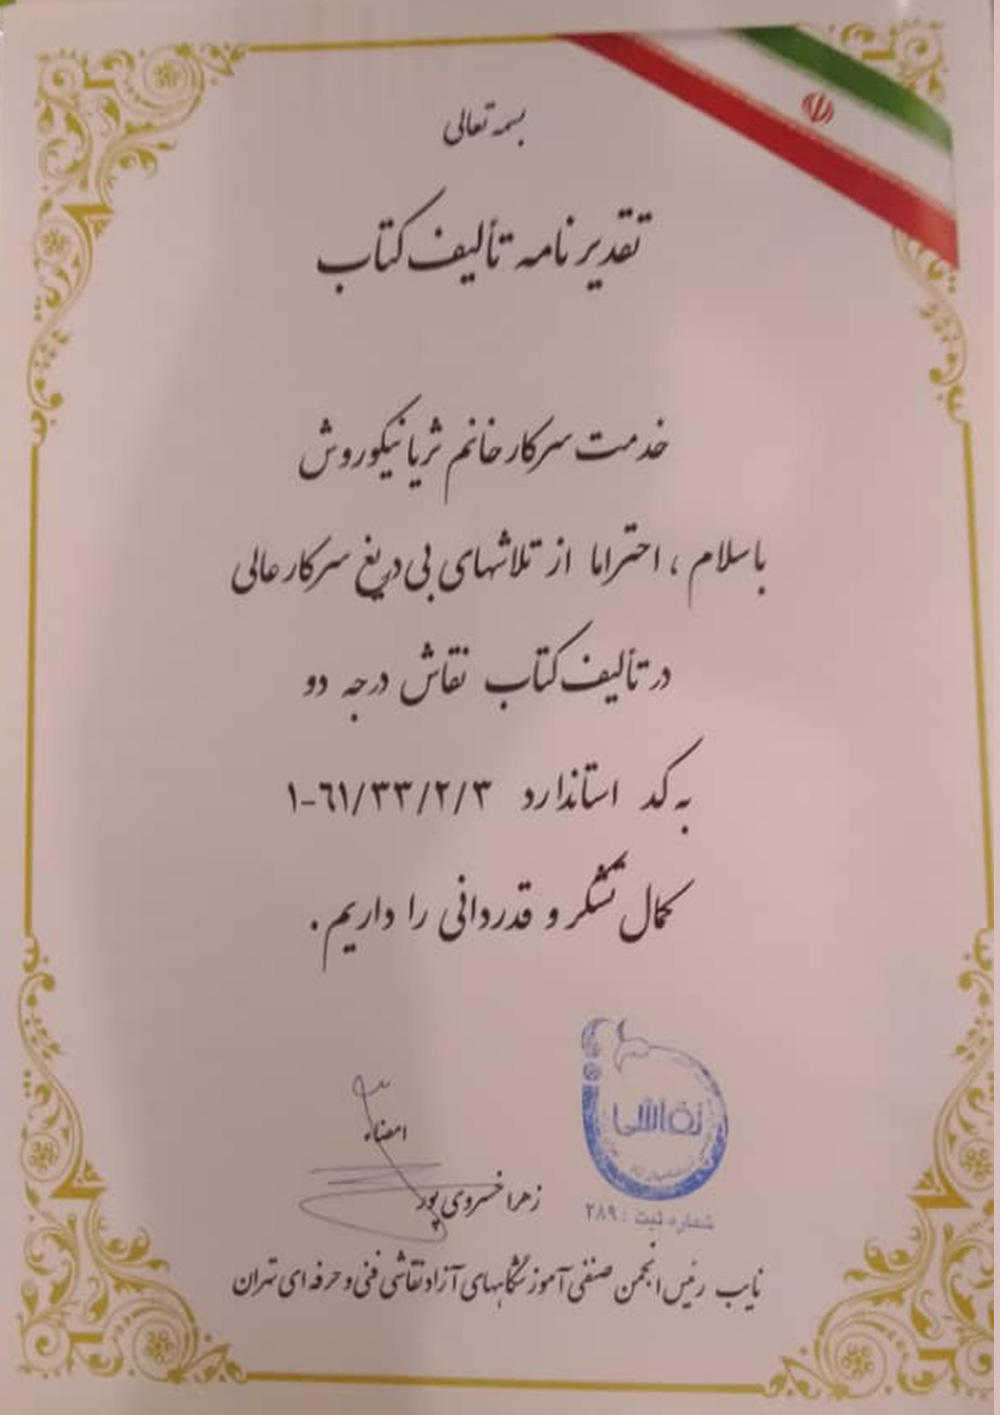 بسمه تعالی
تقدیر نامه تألیف کتاب
خدمت سرکار خانم ثریا نیکوروش
با سلام ، احتراما از تلاشهای بی دریغ سرکار عالی
در تألیف کتاب نقاش درجه دو
به کد استاندارد ۱-٦۱/۳۳/۲/۳
کمال تشکر و قدردانی را داریم .
نقاشی
امضاء
زهرا خسروی پور
شماره ثبت : ۲۸۹
نایب رئیس انجمن صنفی آموزشگاههای آزاد نقاشی فنی و حرفه ای تهران